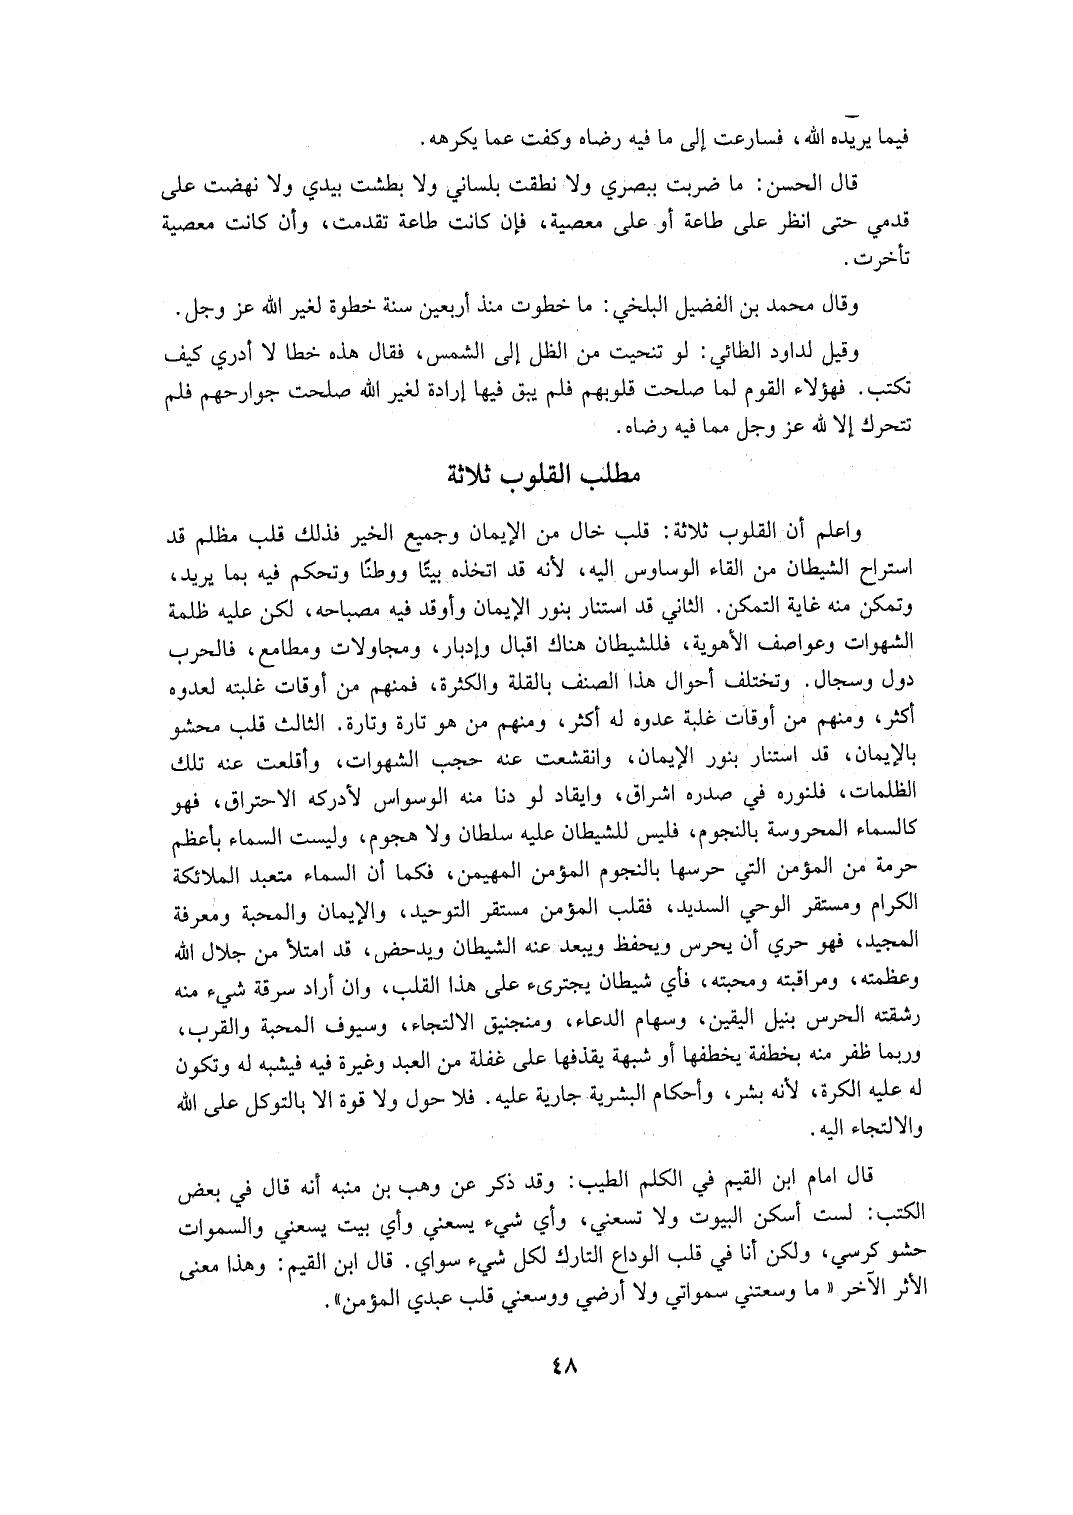 فيما يريده الله، فسارعت إلى ما فيه رضاه وكفت عما يكرهه.
قال الحسن: ما ضربت ببصري ولا نطقت بلساني ولا بطشت بيدي ولا نهضت على
قدمي حتى انظر على طاعة أو على معصية، فإن كانت طاعة تقدمت، وأن كانت معصية
تأخرت.
وقال محمد بن الفضيل البلخي: ما خطوت منذ أربعين سنة خطوة لغير الله عز وجل.
وقيل لداود الطائي: لو تنحيت من الظل إلى الشمس، فقال هذه خطا لا أدري كيف
تكتب. فهؤلاء القوم لما صلحت قلوبهم فلم يبق فيها إرادة لغير الله صلحت جوارحهم فلم
تتحرك إلا لله عز وجل مما فيه رضاه.
مطلب القلوب ثلاثة
واعلم أن القلوب ثلاثة: قلب خال من الإيمان وجميع الخير فذلك قلب مظلم قد
استراح الشيطان من القاء الوساوس اليه، لأنه قد اتخذه بيتًا ووطنًا وتحكم فيه بما يريد،
وتمكن منه غاية التمكن. الثاني قد استنار بنور الإيمان وأوقد فيه مصباحه، لكن عليه ظلمة
الشهوات وعواصف الأهوية، فللشيطان هناك اقبال وإدبار، ومجاولات ومطامع، فالحرب
دول وسجال. وتختلف أحوال هذا الصنف بالقلة والكثرة، فمنهم من أوقات غلبته لعدوه
أكثر، ومنهم من أوقات غلبة عدوه له أكثر، ومنهم من هو تارة وتارة. الثالث قلب محشو
بالإيمان، قد استنار بنور الإيمان، وانقشعت عنه حجب الشهوات، وأقلعت عنه تلك
الظلمات، فلنوره في صدره اشراق، وايقاد لو دنا منه الوسواس لأدركه الاحتراق، فهو
كالسماء المحروسة بالنجوم، فليس للشيطان عليه سلطان ولا هجوم، وليست السماء بأعظم
حرمة من المؤمن التي حرسها بالنجوم المؤمن المهيمن، فكما أن السماء متعبد الملائكة
الكرام ومستقر الوحي السديد، فقلب المؤمن مستقر التوحيد، والإيمان والمحبة ومعرفة
المجيد، فهو حري أن يحرس ويحفظ ويبعد عنه الشيطان ويدحض، قد امتلأ من جلال الله
وعظمته، ومراقبته ومحبته، فأي شيطان يجترىء على هذا القلب، وان أراد سرقة شيء منه
رشقته الحرس بنيل اليقين، وسهام الدعاء، ومنجنيق الالتجاء، وسيوف المحبة والقرب،
وربما ظفر منه بخطفة يخطفها أو شبهة يقذفها على غفلة من العبد وغيرة فيه فيشبه له وتكون
له عليه الكرة، لأنه بشر، وأحكام البشرية جارية عليه. فلا حول ولا قوة الا بالتوكل على الله
والالتجاء اليه.
قال امام ابن القيم في الكلم الطيب: وقد ذكر عن وهب بن منبه أنه قال في بعض
الكتب: لست أسكن البيوت ولا تسعني، وأي شيء يسعني وأي بيت يسعني والسموات
حشو كرسي، ولكن أنا في قلب الوداع التارك لكل شيء سواي. قال ابن القيم: وهذا معنى
الأثر الآخر « ما وسعتني سمواتي ولا أرضي ووسعني قلب عبدي المؤمن».
٤٨